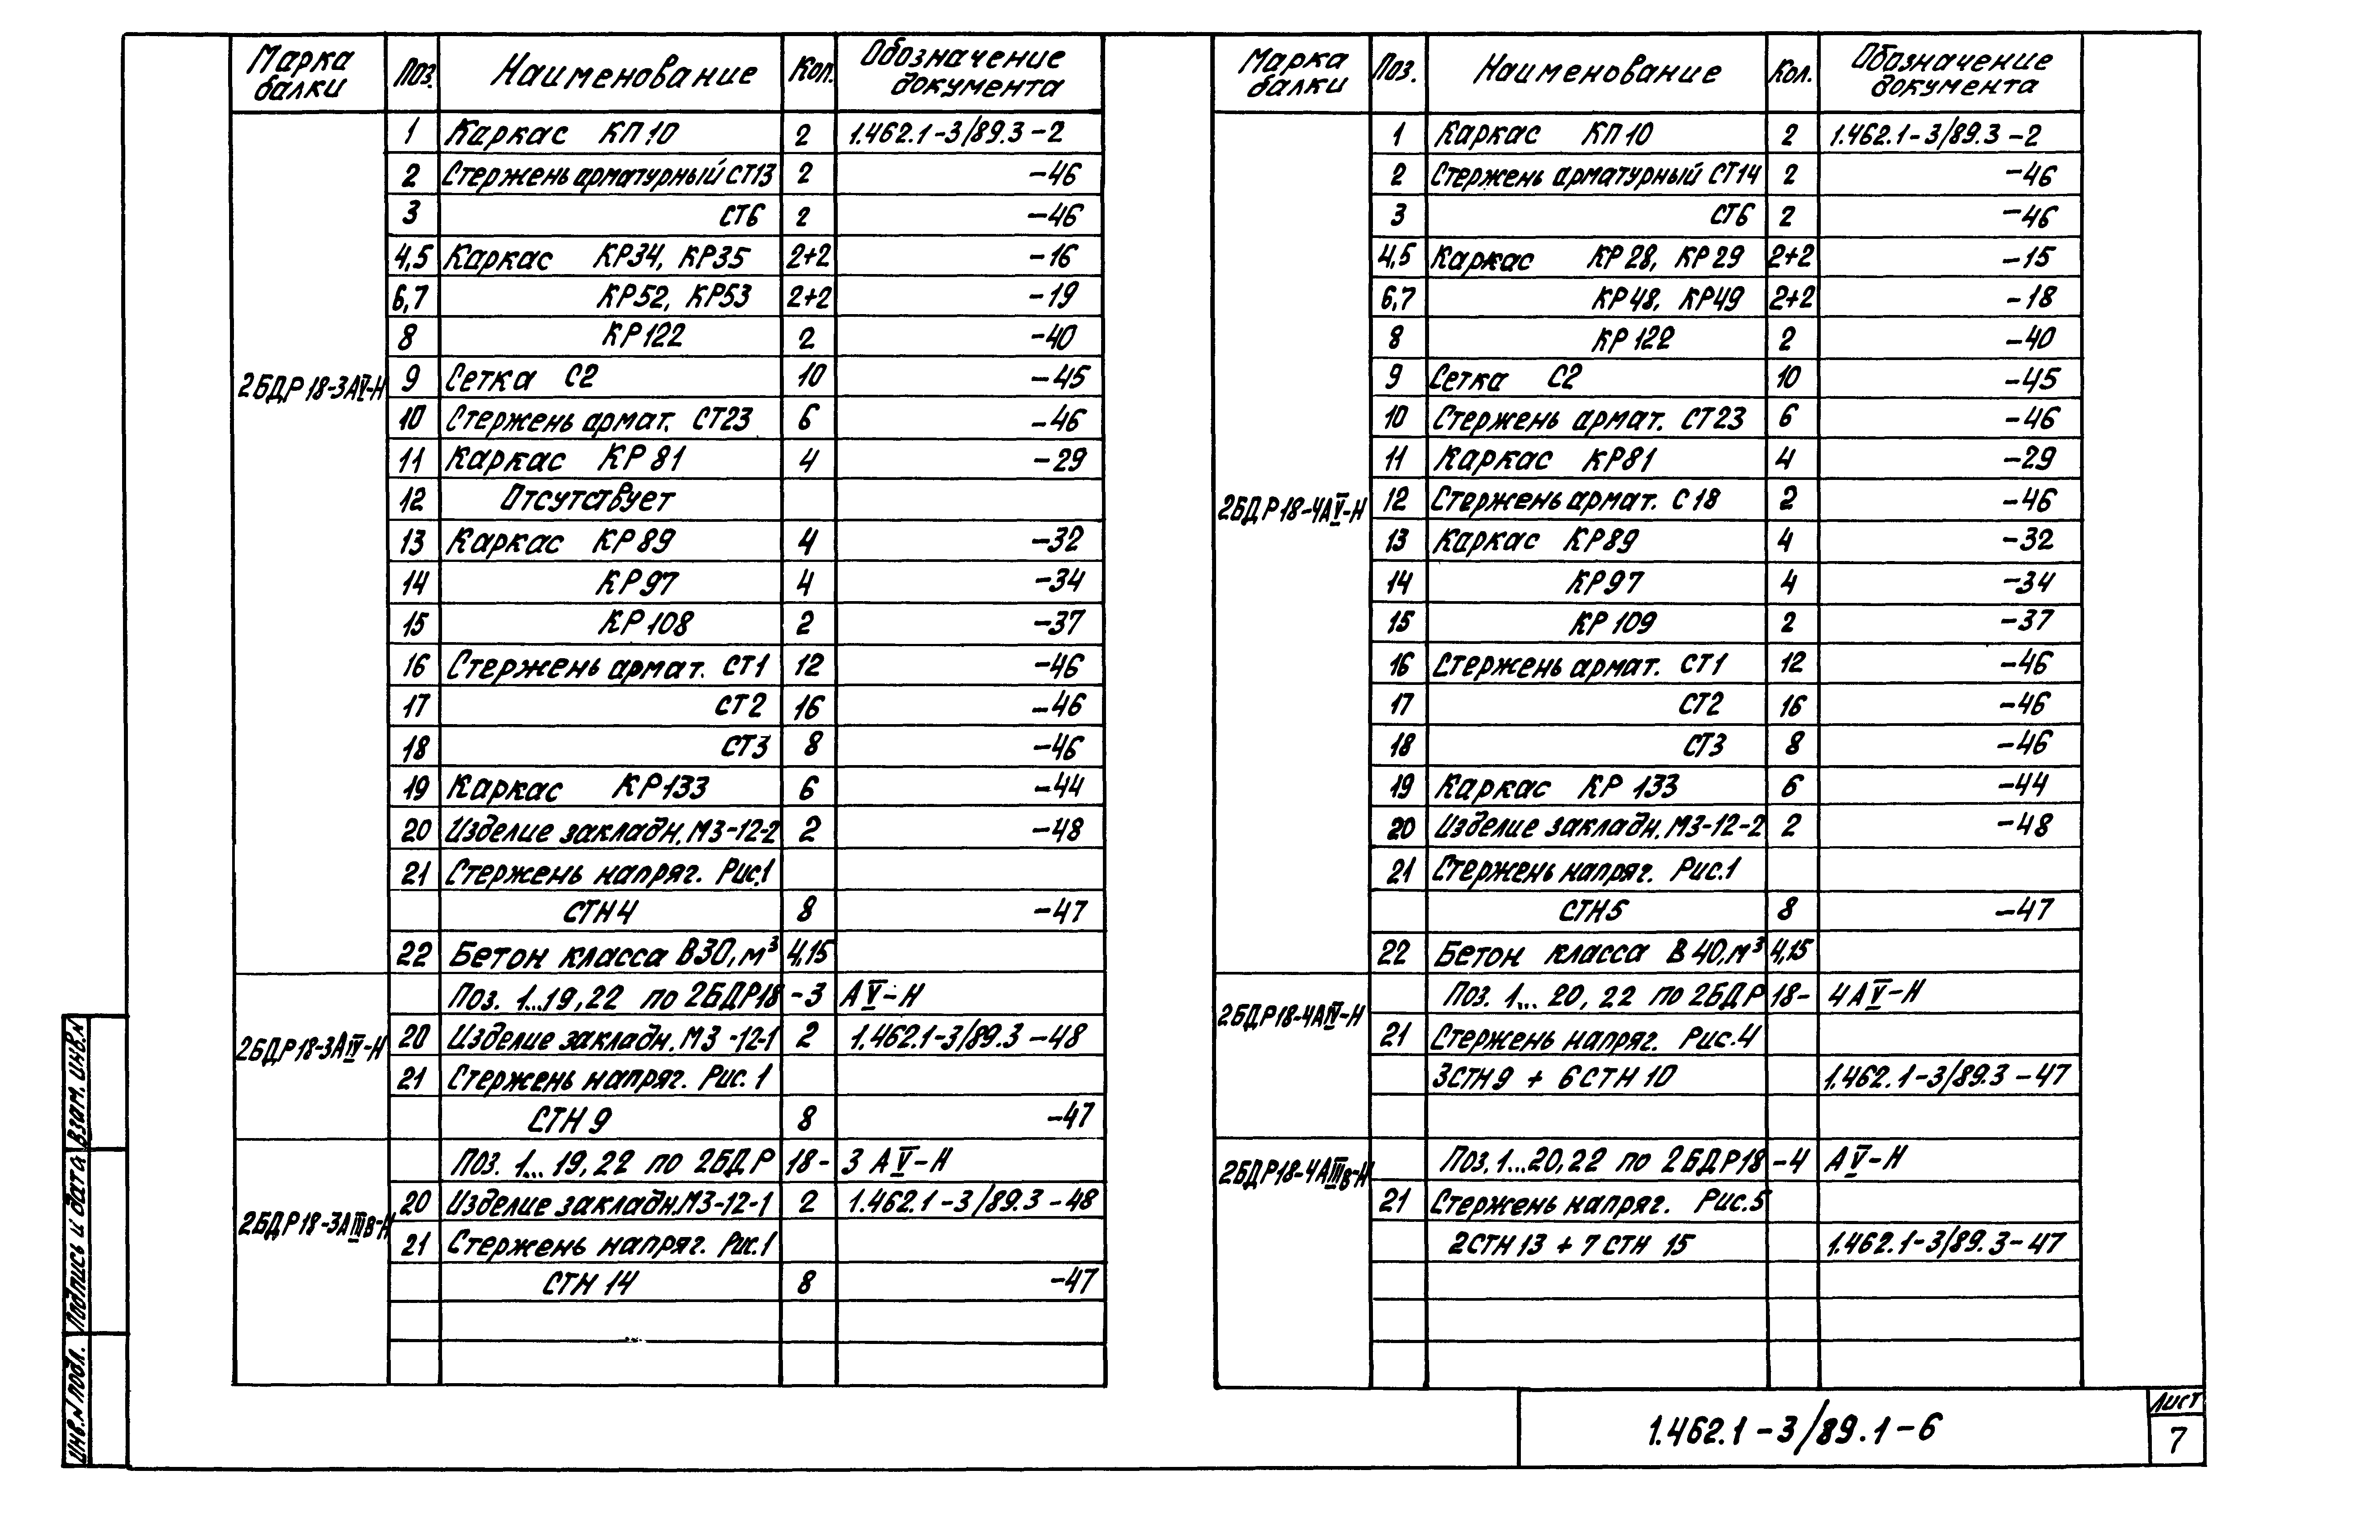 Марка балки Поз. Наименование Кол. Обозначение документа
2БДР18-3АV-Н
1 Каркас КП10 2 1.462.1-3/89.3-2
2 Стержень арматурный СТ13 2 -46
3 СТ6 2 -46
4,5 Каркас КР34, КР35 2+2 -16
6,7 КР52, КР53 2+2 -19
8 КР122 2 -40
9 Сетка С2 10 -45
10 Стержень армат. СТ23 6 -46
11 Каркас КР81 4 -29
12 Отсутствует
13 Каркас КР89 4 -32
14 КР97 4 -34
15 КР108 2 -37
16 Стержень армат. СТ1 12 -46
17 СТ2 16 -46
18 СТ3 8 -46
19 Каркас КР133 6 -44
20 Изделие закладн. МЗ-12-2 2 -48
21 Стержень напряг. Рис.1
СТН4 8 -47
22 Бетон класса В30, м³ 4,15
2БДР18-3АIV-Н
Поз. 1...19,22 по 2БДР18-3 АV-Н
20 Изделие закладн. МЗ-12-1 2 1.462.1-3/89.3-48
21 Стержень напряг. Рис. 1
СТН 9 8 -47
2БДР18-3АIIIв-Н
Поз. 1... 19,22 по 2БДР 18- 3 АV-Н
20 Изделие закладн. МЗ-12-1 2 1.462.1-3/89.3-48
21 Стержень напряг. Рис.1
СТН 14 8 -47
Марка балки Поз. Наименование Кол. Обозначение документа
2БДР18-4АV-Н
1 Каркас КП10 2 1.462.1-3/89.3-2
2 Стержень арматурный СТ14 2 -46
3 СТ6 2 -46
4,5 Каркас КР28, КР29 2+2 -15
6,7 КР48, КР49 2+2 -18
8 КР122 2 -40
9 Сетка С2 10 -45
10 Стержень армат. СТ23 6 -46
11 Каркас КР81 4 -29
12 Стержень армат. С18 2 -46
13 Каркас КР89 4 -32
14 КР97 4 -34
15 КР109 2 -37
16 Стержень армат. СТ1 12 -46
17 СТ2 16 -46
18 СТ3 8 -46
19 Каркас КР 133 6 -44
20 Изделие закладн. МЗ-12-2 2 -48
21 Стержень напряг. Рис.1
СТН5 8 -47
22 Бетон класса В40, м³ 4,15
2БДР18-4АIV-Н
Поз. 1... 20, 22 по 2БДР 18- 4АV-Н
21 Стержень напряг. Рис.4
3СТН9 + 6СТН10 1.462.1-3/89.3-47
2БДР18-4АIIIв-Н
Поз. 1...20,22 по 2БДР18-4 АV-Н
21 Стержень напряг. Рис.5
2СТН13 + 7СТН 15 1.462.1-3/89.3-47
Инв.N подл. Подпись и дата Взам. инв.N
1.462.1-3/89.1-6
Лист
7